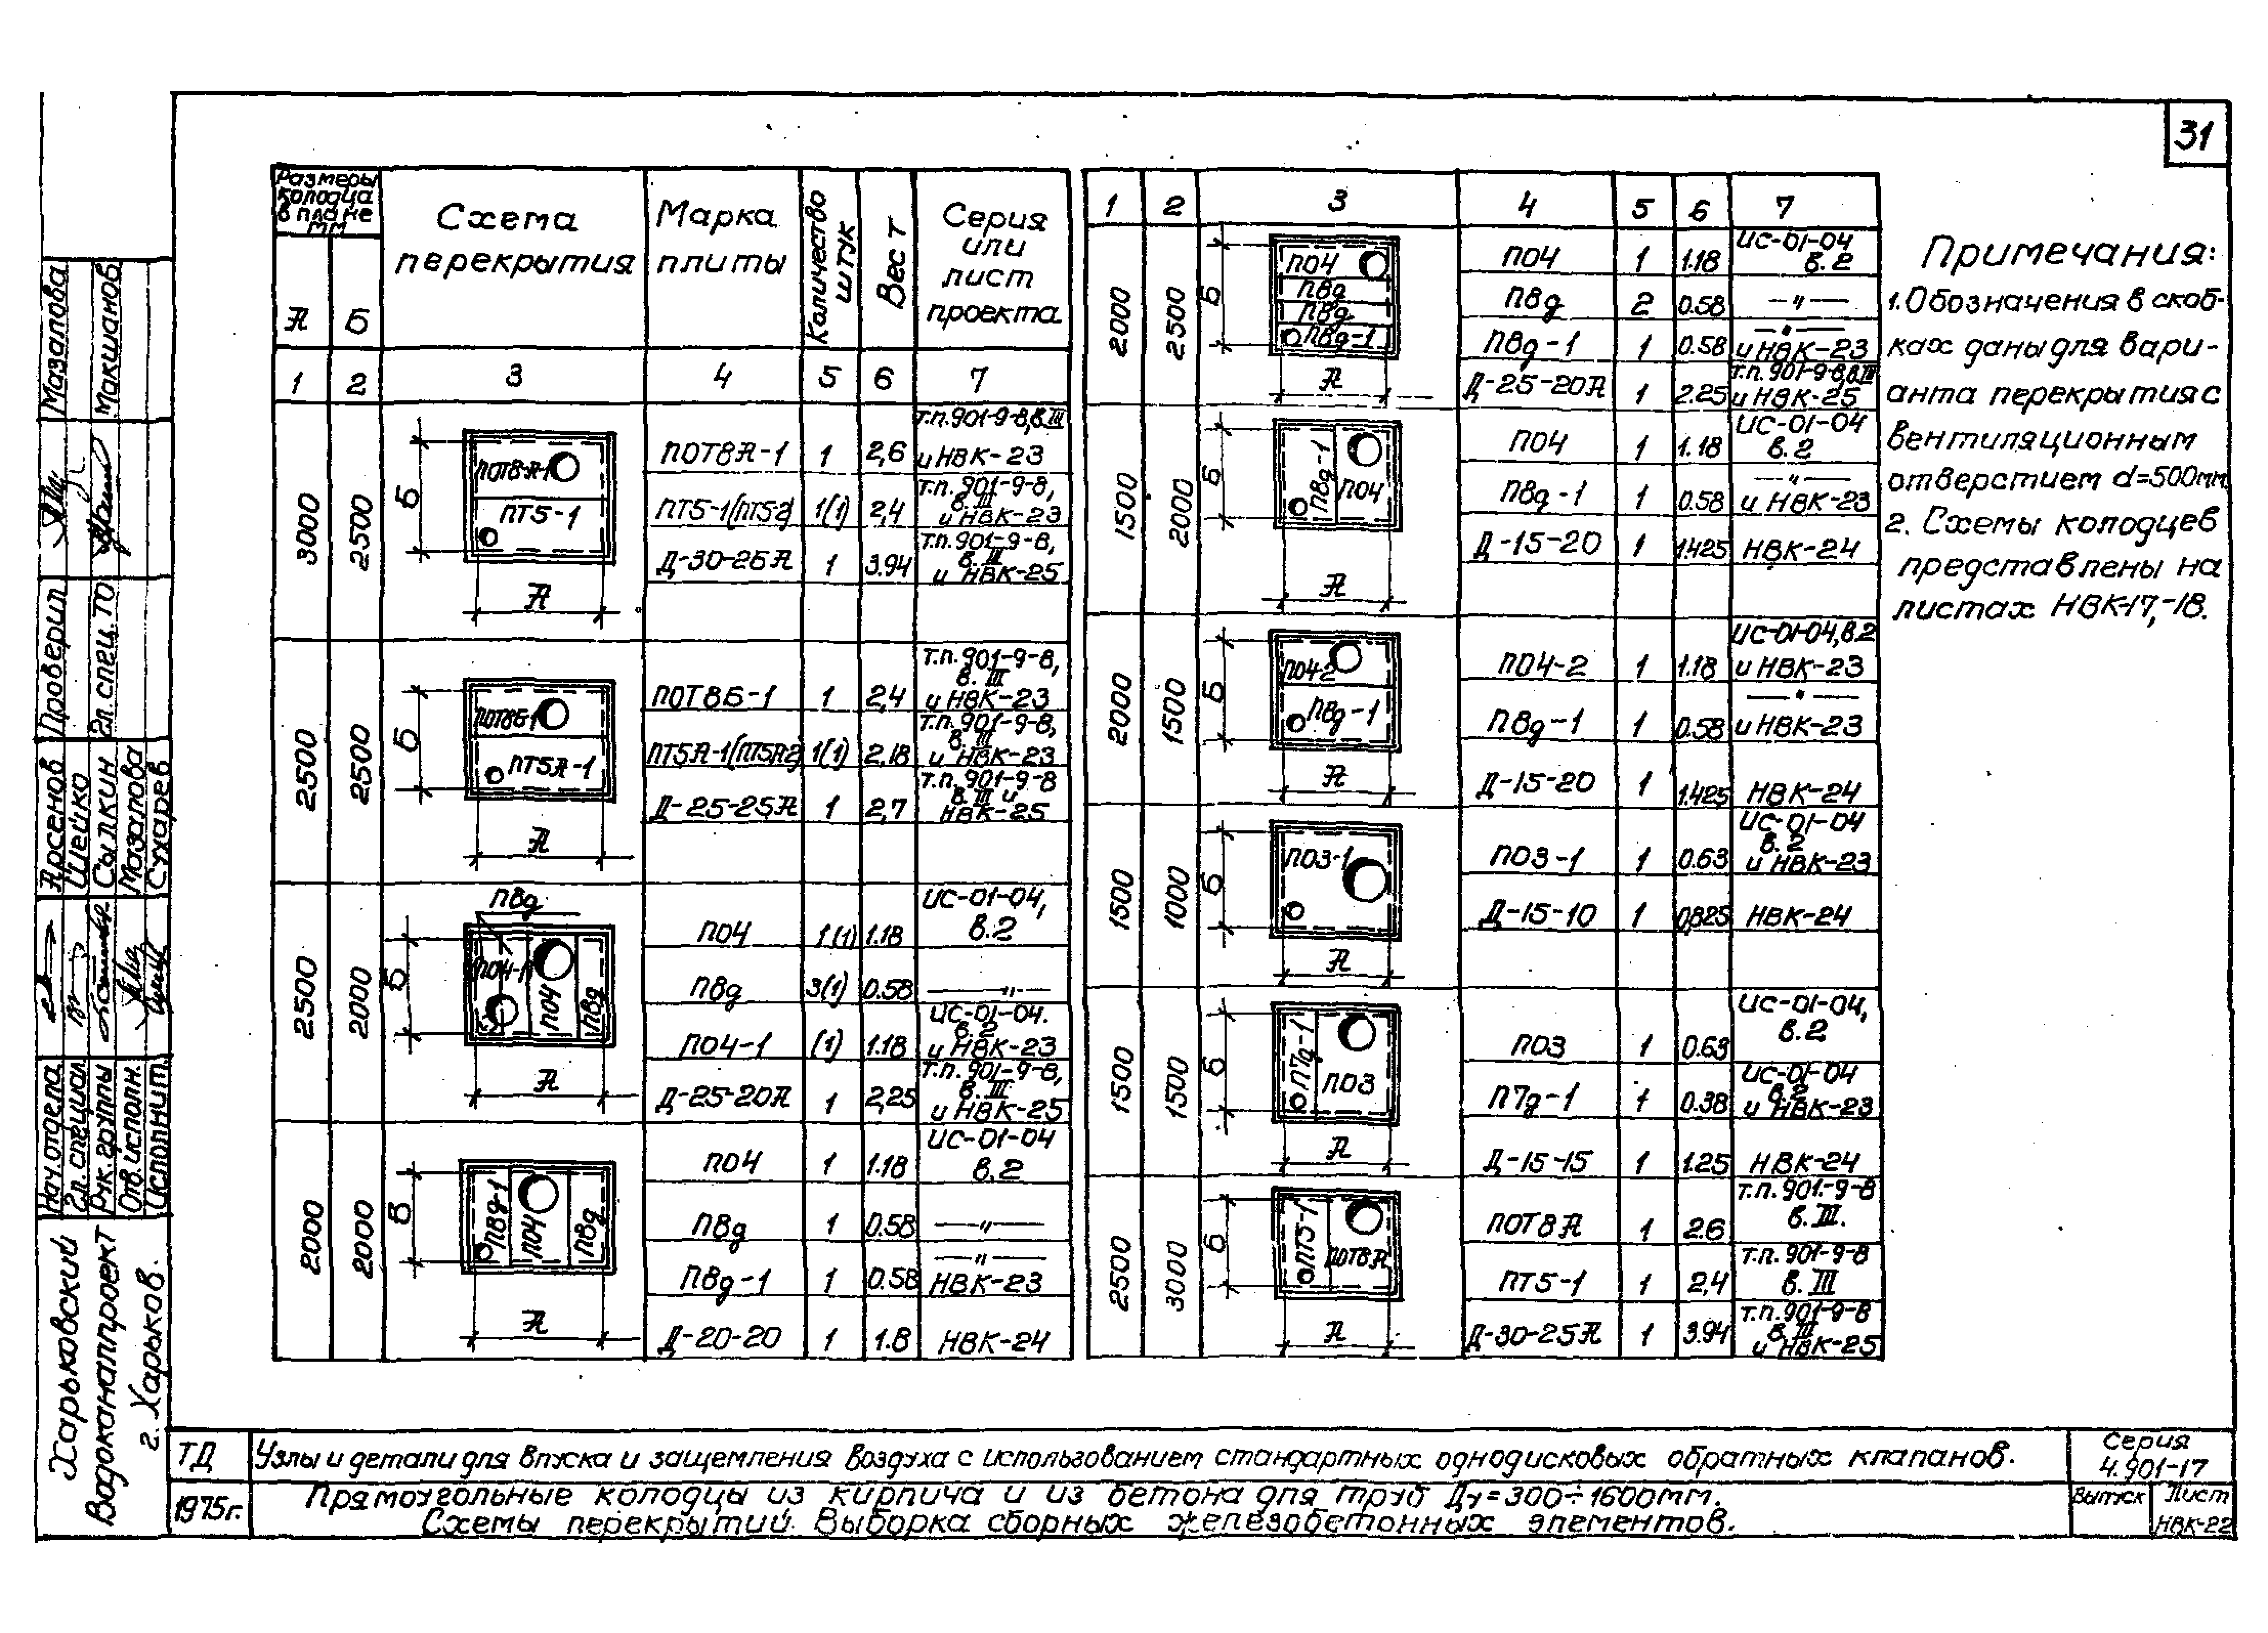 31
Размеры колодца в плане мм
Схема перекрытия
Марка плиты
Количество штук
Вес т
Серия или лист проекта
А Б
1 2 3 4 5 6 7
3000 2500
Б
ПОТ8А-1
ПТ5-1
А
ПОТ8А-1 1 2,6 т.п.901-9-8, в.III и НВК-23
ПТ5-1(ПТ5-2) 1(1) 2,4 т.п.901-9-8, в.III и НВК-23
Д-30-25А 1 3.94 т.п.901-9-8, в.III и НВК-25
2500 2500
Б
ПОТ8Б-1
ПТ5А-1
А
ПОТ8Б-1 1 2,4 т.п.901-9-8, в.III и НВК-23
ПТ5А-1(ПТ5А-2) 1(1) 2,18 т.п.901-9-8, в.III и НВК-23
Д-25-25А 1 2,7 т.п.901-9-8 в.III и НВК-25
2500 2000
Б
П8д
ПО4-1
ПО4
П8д
А
ПО4 1(1) 1.18 ИС-01-04, в.2
П8д 3(1) 0.58 —"—
ПО4-1 (1) 1.18 ИС-01-04. в.2 и НВК-23
Д-25-20А 1 2,25 т.п.901-9-8, в.III и НВК-25
2000 2000
Б
П8д-1
ПО4
П8д
А
ПО4 1 1.18 ИС-01-04 в.2
П8д 1 0.58 —"—
П8д-1 1 0.58 —"— НВК-23
Д-20-20 1 1.8 НВК-24
1 2 3 4 5 6 7
2000 2500
Б
ПО4
П8д
П8д
П8д-1
А
ПО4 1 1.18 ИС-01-04 в.2
П8д 2 0.58 —"—
П8д-1 1 0.58 —"— и НВК-23
Д-25-20А 1 2.25 т.п.901-9-8, в.III и НВК-25
1500 2000
Б
П8д-1
ПО4
А
ПО4 1 1.18 ИС-01-04 в.2
П8д-1 1 0.58 —"— и НВК-23
Д-15-20 1 1.425 НВК-24
2000 1500
Б
ПО4-2
П8д-1
А
ПО4-2 1 1.18 ИС-01-04, в.2 и НВК-23
П8д-1 1 0.58 —"— и НВК-23
Д-15-20 1 1.425 НВК-24
1500 1000
Б
ПО3-1
А
ПО3-1 1 0.63 ИС-01-04 в.2 и НВК-23
Д-15-10 1 0,825 НВК-24
1500 1500
Б
П7д-1
ПО3
А
ПО3 1 0.63 ИС-01-04, в.2
П7д-1 1 0.38 ИС-01-04 в.2 и НВК-23
Д-15-15 1 1.25 НВК-24
2500 3000
Б
ПТ5-1
ПОТ8А
А
ПОТ8А 1 2.6 т.п.901-9-8 в.III.
ПТ5-1 1 2,4 т.п.901-9-8 в.III
Д-30-25А 1 3.94 т.п.901-9-8 в.III и НВК-25
Примечания:
1. Обозначения в скоб-
ках даны для вари-
анта перекрытия с
вентиляционным
отверстием d=500мм
2. Схемы колодцев
представлены на
листах НВК-17,-18.
Мазалова
Макшанов
Проверил
Гл. спец. ТО
Арсенов
Шейко
Сылкин
Мазалова
Сухарев
Нач. отдела
Гл. специал.
Рук. группы
Отв. исполн.
Исполнит.
Харьковский
Водоканалпроект
г. Харьков.
ТД
Узлы и детали для впуска и защемления воздуха с использованием стандартных однодисковых обратных клапанов.
Серия
4.901-17
1975г.
Прямоугольные колодцы из кирпича и из бетона для труб Ду=300÷1600мм.
Схемы перекрытий. Выборка сборных железобетонных элементов.
Выпуск
Лист
НВК-22